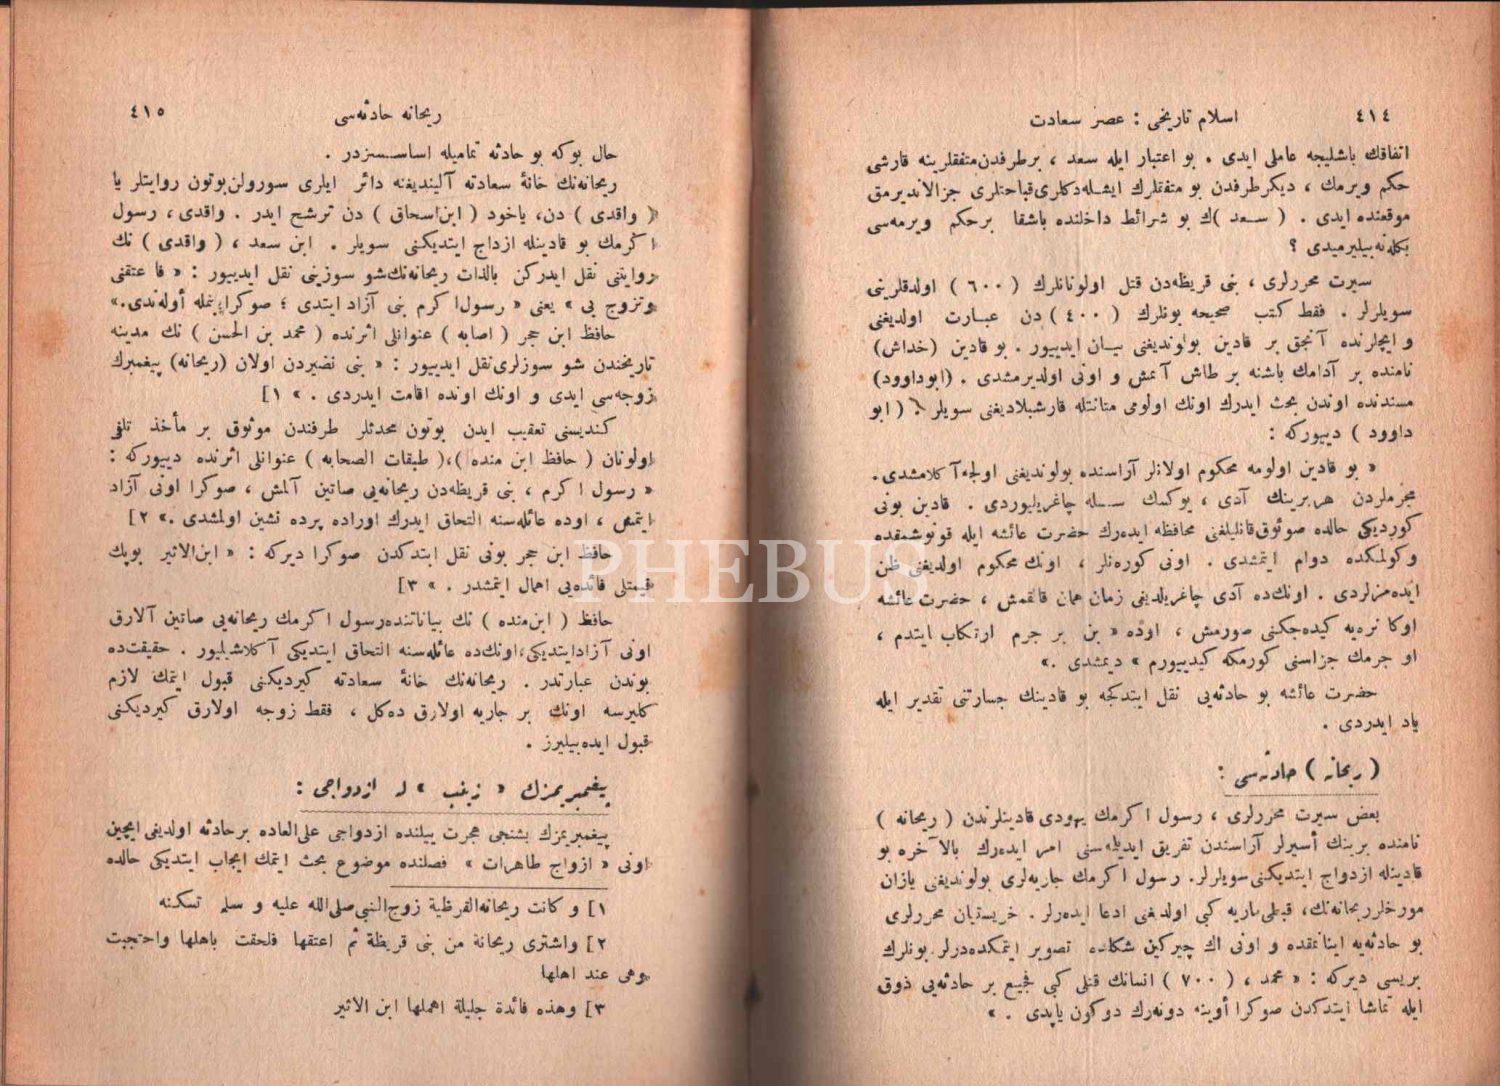 ٤١٤
اسلام تاريخى : عصر سعادت
اتفاقك باشليجه عاملى ايدى . بو اعتبار ايله سعد ، برطرفدن متفقلرينه قارشى
حكم ويرمك ، ديكرطرفدن بو متفقلرك ايشله دكلرى قباحتلرى جزالانديرمق
موقعنده ايدى . ( سعد )ك بو شرائط داخلنده باشقا برحكم ويرمه سى
بكله نه بيليرميدى ؟
سيرت محررلرى ، بنى قريظه دن قتل اولونانلرك ( ٦٠٠ ) اولدقلرينى
سويلرلر . فقط كتب صحيحه بونلرك ( ٤٠٠ ) دن عبارت اولديغنى
و ايچلرنده آنجق بر قادين بولونديغنى بيان ايدييور . بو قادين (خداش)
نامنده بر آدامك باشنه بر طاش آتمش و اونى اولديرمشدى . (ابوداوود)
مسندنده اوندن بحث ايدرك اونك اولومى متانتله قارشيلاديغنى سويلر . ( ابو
داوود ) دييوركه :
« بو قادين اولومه محكوم اولانلر آراسنده بولونديغنى اولجه آكلامشدى .
مجرملردن هر برينك آدى ، يوكسك سسله چاغريلييوردى . قادين بونى
كورديكى حالده صوغوق قانليلغنى محافظه ايدەرك حضرت عائشه ايله قونوشمقده
وكولمكده دوام ايتمشدى . اونى كورەنلر ، اونك محكوم اولديغنى ظن
ايدەمزلردى . اونك ده آدى چاغريلديغى زمان همان قالقمش ، حضرت عائشه
اوكا نرەيه كيدەجكنى صورمش ، اوده « بن بر جرم ارتكاب ايتدم ،
او جرمك جزاسنى كورمكه كيدييورم » ديمشدى .»
حضرت عائشه بو حادثه يى نقل ايتدكجه بو قادينك جسارتنى تقدير ايله
ياد ايدردى .
( ريحانه ) حادثه سى :
بعض سيرت محررلرى ، رسول اكرمك يهودى قادينلرندن ( ريحانه )
نامنده برينك أسيرلر آراسندن تفريق ايديلمه سنى امر ايدەرك بالآخره بو
قادينله ازدواج ايتديكنى سويلرلر. رسول اكرمك جاريه لرى بولونديغنى يازان
مورخلر ريحانه نك، قبطلى ماريه كبى اولديغنى ادعا ايدەرلر . خريستيان محررلرى
بو حادثه يه اينانمقده و اونى اك چيركين شكلده تصوير ايتمكده درلر. بونلرك
بريسى ديركه : « محمد ، ( ٧٠٠ ) انسانك قتلى كبى فجيع بر حادثه يى ذوق
ايله تماشا ايتدكدن صوكرا أوينه دونەرك دوكون ياپدى . »
ريحانه حادثه سى
٤١٥
حال بوكه بو حادثه تماميله اساسسزدر .
ريحانه نك خانۀ سعادته آلينديغنه دائر ايلرى سورولن بوتون روايتلر يا
( واقدى ) دن، ياخود ( ابن اسحاق ) دن ترشح ايدر . واقدى ، رسول
اكرمك بو قادينله ازدواج ايتديكنى سويلر . ابن سعد ، ( واقدى ) نك
روايتنى نقل ايدركن بالذات ريحانه نك شو سوزينى نقل ايدييور : « فاعتقنى
وتزوج بى » يعنى « رسول اكرم بنى آزاد ايتدى ؛ صوكرا بنمله أولەندى.»
حافظ ابن حجر ( اصابه ) عنوانلى اثرنده ( محمد بن الحسن ) نك مدينه
تاريخندن شو سوزلرى نقل ايدييور : « بنى نضيردن اولان (ريحانه) پيغمبرك
زوجه سى ايدى و اونك اونده اقامت ايدردى . » ١]
كنديسنى تعقيب ايدن بوتون محدثلر طرفندن موثوق بر مأخذ تلقى
اولونان ( حافظ ابن منده )، ( طبقات الصحابه ) عنوانلى اثرنده دييوركه :
« رسول اكرم ، بنى قريظه دن ريحانه يى صاتين آلمش ، صوكرا اونى آزاد
ايتمش ، اوده عائله سنه التحاق ايدرك اوراده پرده نشين اولمشدى .» ٢]
حافظ ابن حجر بونى نقل ايتدكدن صوكرا ديركه : « ابن الاثير بو پك
قيمتلى فائده يى اهمال ايتمشدر . » ٣]
PHEBUS
حافظ ( ابن منده ) نك بياناتنده رسول اكرمك ريحانه يى صاتين آلارق
اونى آزاد ايتديكى، اونك ده عائله سنه التحاق ايتديكى آكلاشيليور . حقيقت ده
بوندن عبارتدر . ريحانه نك خانۀ سعادته كيرديكنى قبول ايتمك لازم
كليرسه اونك بر جاريه اولارق دەكل ، فقط زوجه اولارق كيرديكنى
قبول ايدەبيليرز .
پيغمبريمزك « زينب » له ازدواجى :
پيغمبريمزك بشنجى هجرت ييلنده ازدواجى على العاده بر حادثه اولديغى ايچين
اونى « ازواج طاهرات » فصلنده موضوع بحث ايتمك ايجاب ايتديكى حالده
١] و كانت ريحانه القرظية زوج النبى صلى الله عليه و سلم تسكنه
٢] واشترى ريحانة من بنى قريظة ثم اعتقها فلحقت باهلها واحتجبت
وهى عند اهلها
٣] وهذه فائدة جليلة اهملها ابن الاثير